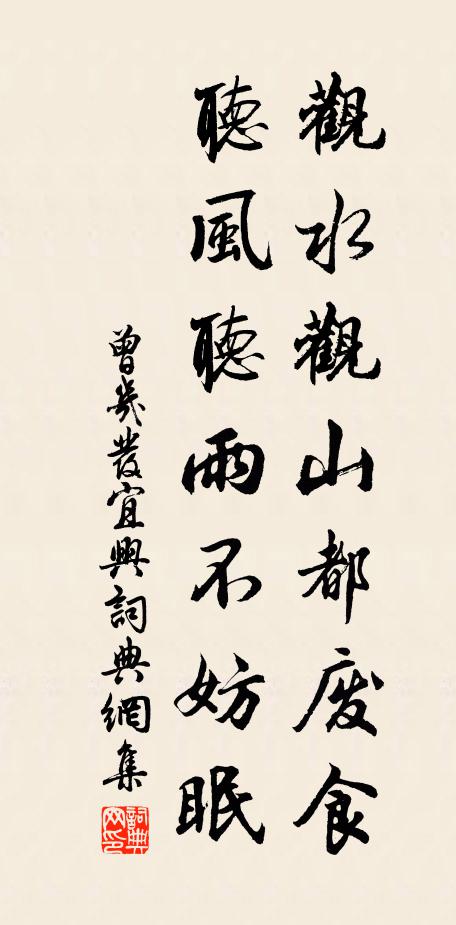 觀水觀山都废食
聽風聽雨不妨眠
曾幾發宜興詞典網集
詞典网印